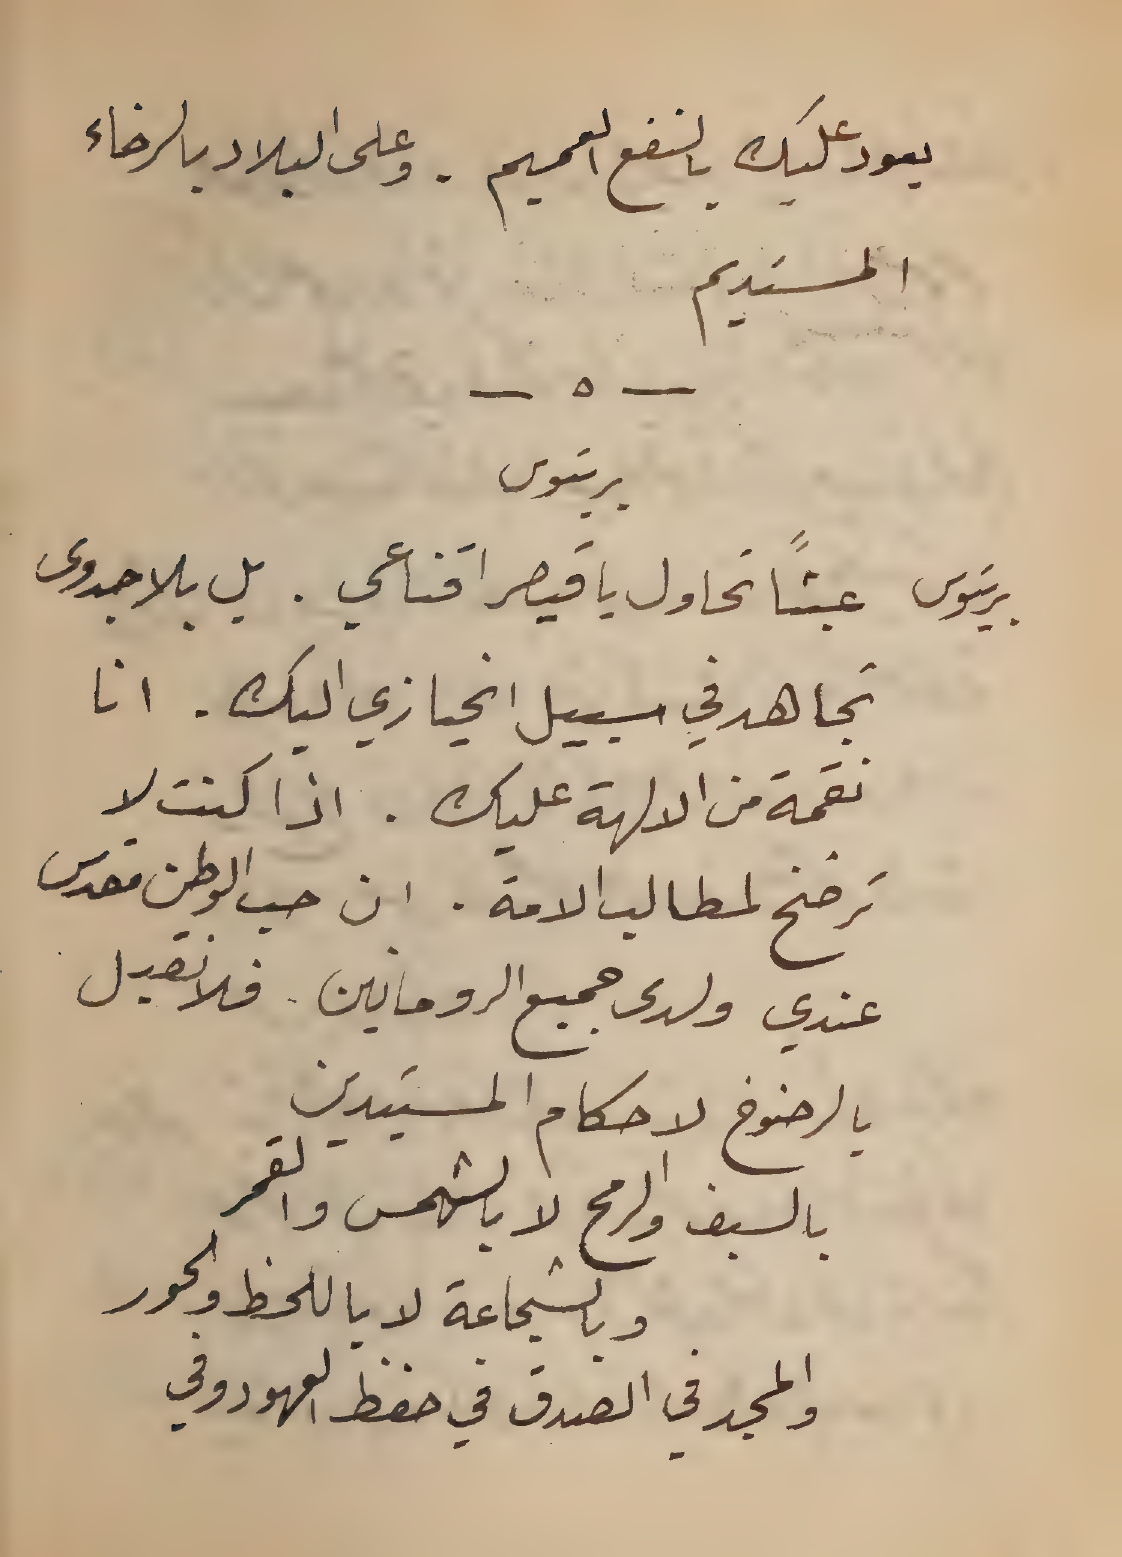 يعود عليك بالنفع العميم . وعلى البلاد بالرخاء
المستديم
— ٥ —
بريتوس
بريتوس عبثاً تحاول يا قيصر اقناعي . بل بلا جدوى
تجاهد في سبيل انحيازي اليك . انا
نقمة من الالهة عليك . اذا كنت لا
ترضخ لمطالب الامة . ان حب الوطن مقدس
عندي ولدى جميع الرومانيين . فلا نقبل
بالرضوخ لاحكام المستبدين
بالسيف والرمح لا بالشمس والقمر
وبالشجاعة لا باللحظ والحور
والمجد في الصدق في حفظ العهود وفي